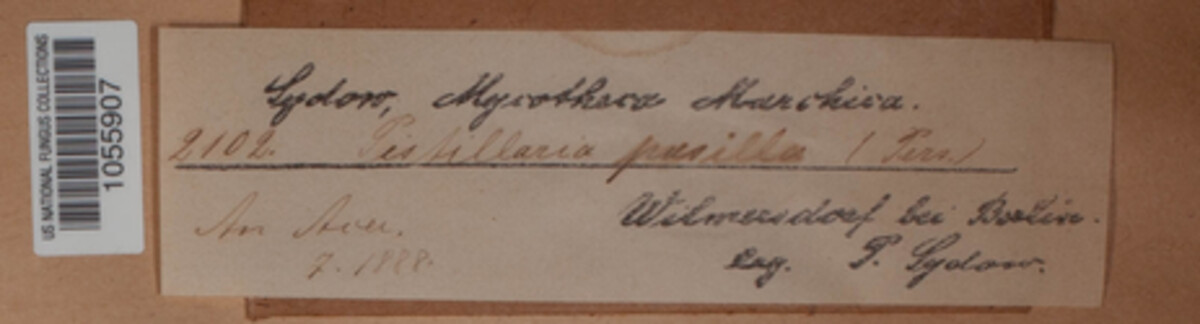 US NATIONAL FUNGUS COLLECTIONS
1055907
Sydow, Mycotheca Marchica.
2102. Pistillaria pusilla (Pers.)
Wilmersdorf bei Berlin.
An
7. 1888.
Leg. P. Sydow.